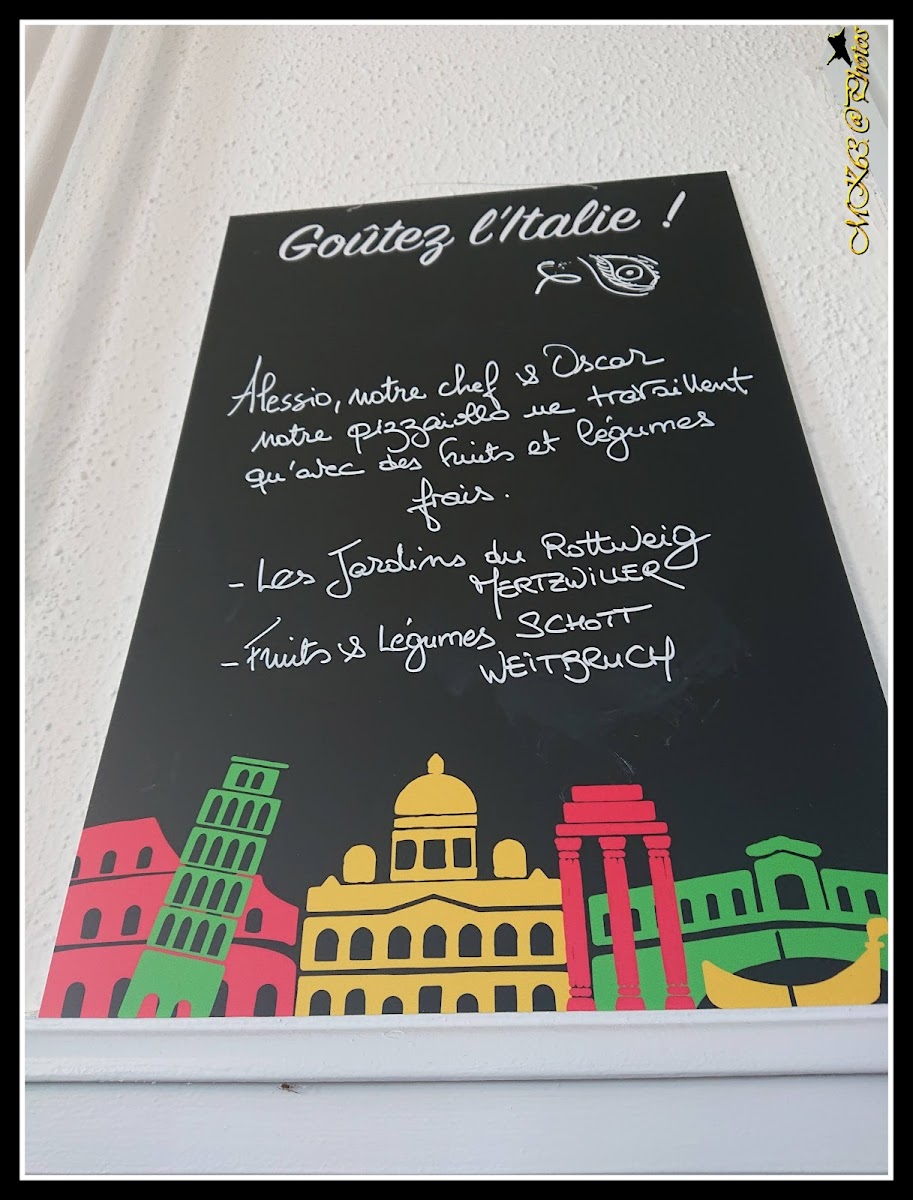 Goûtez l'Italie !
Alessio, notre chef & Oscar
notre pizzaiollo ne travaillent
qu'avec des fruits et légumes
frais.
- Les Jardins du Rottweig
MERTZWILLER
- Fruits & Légumes SCHOTT
WEITBRUCH
MK63.@Photos